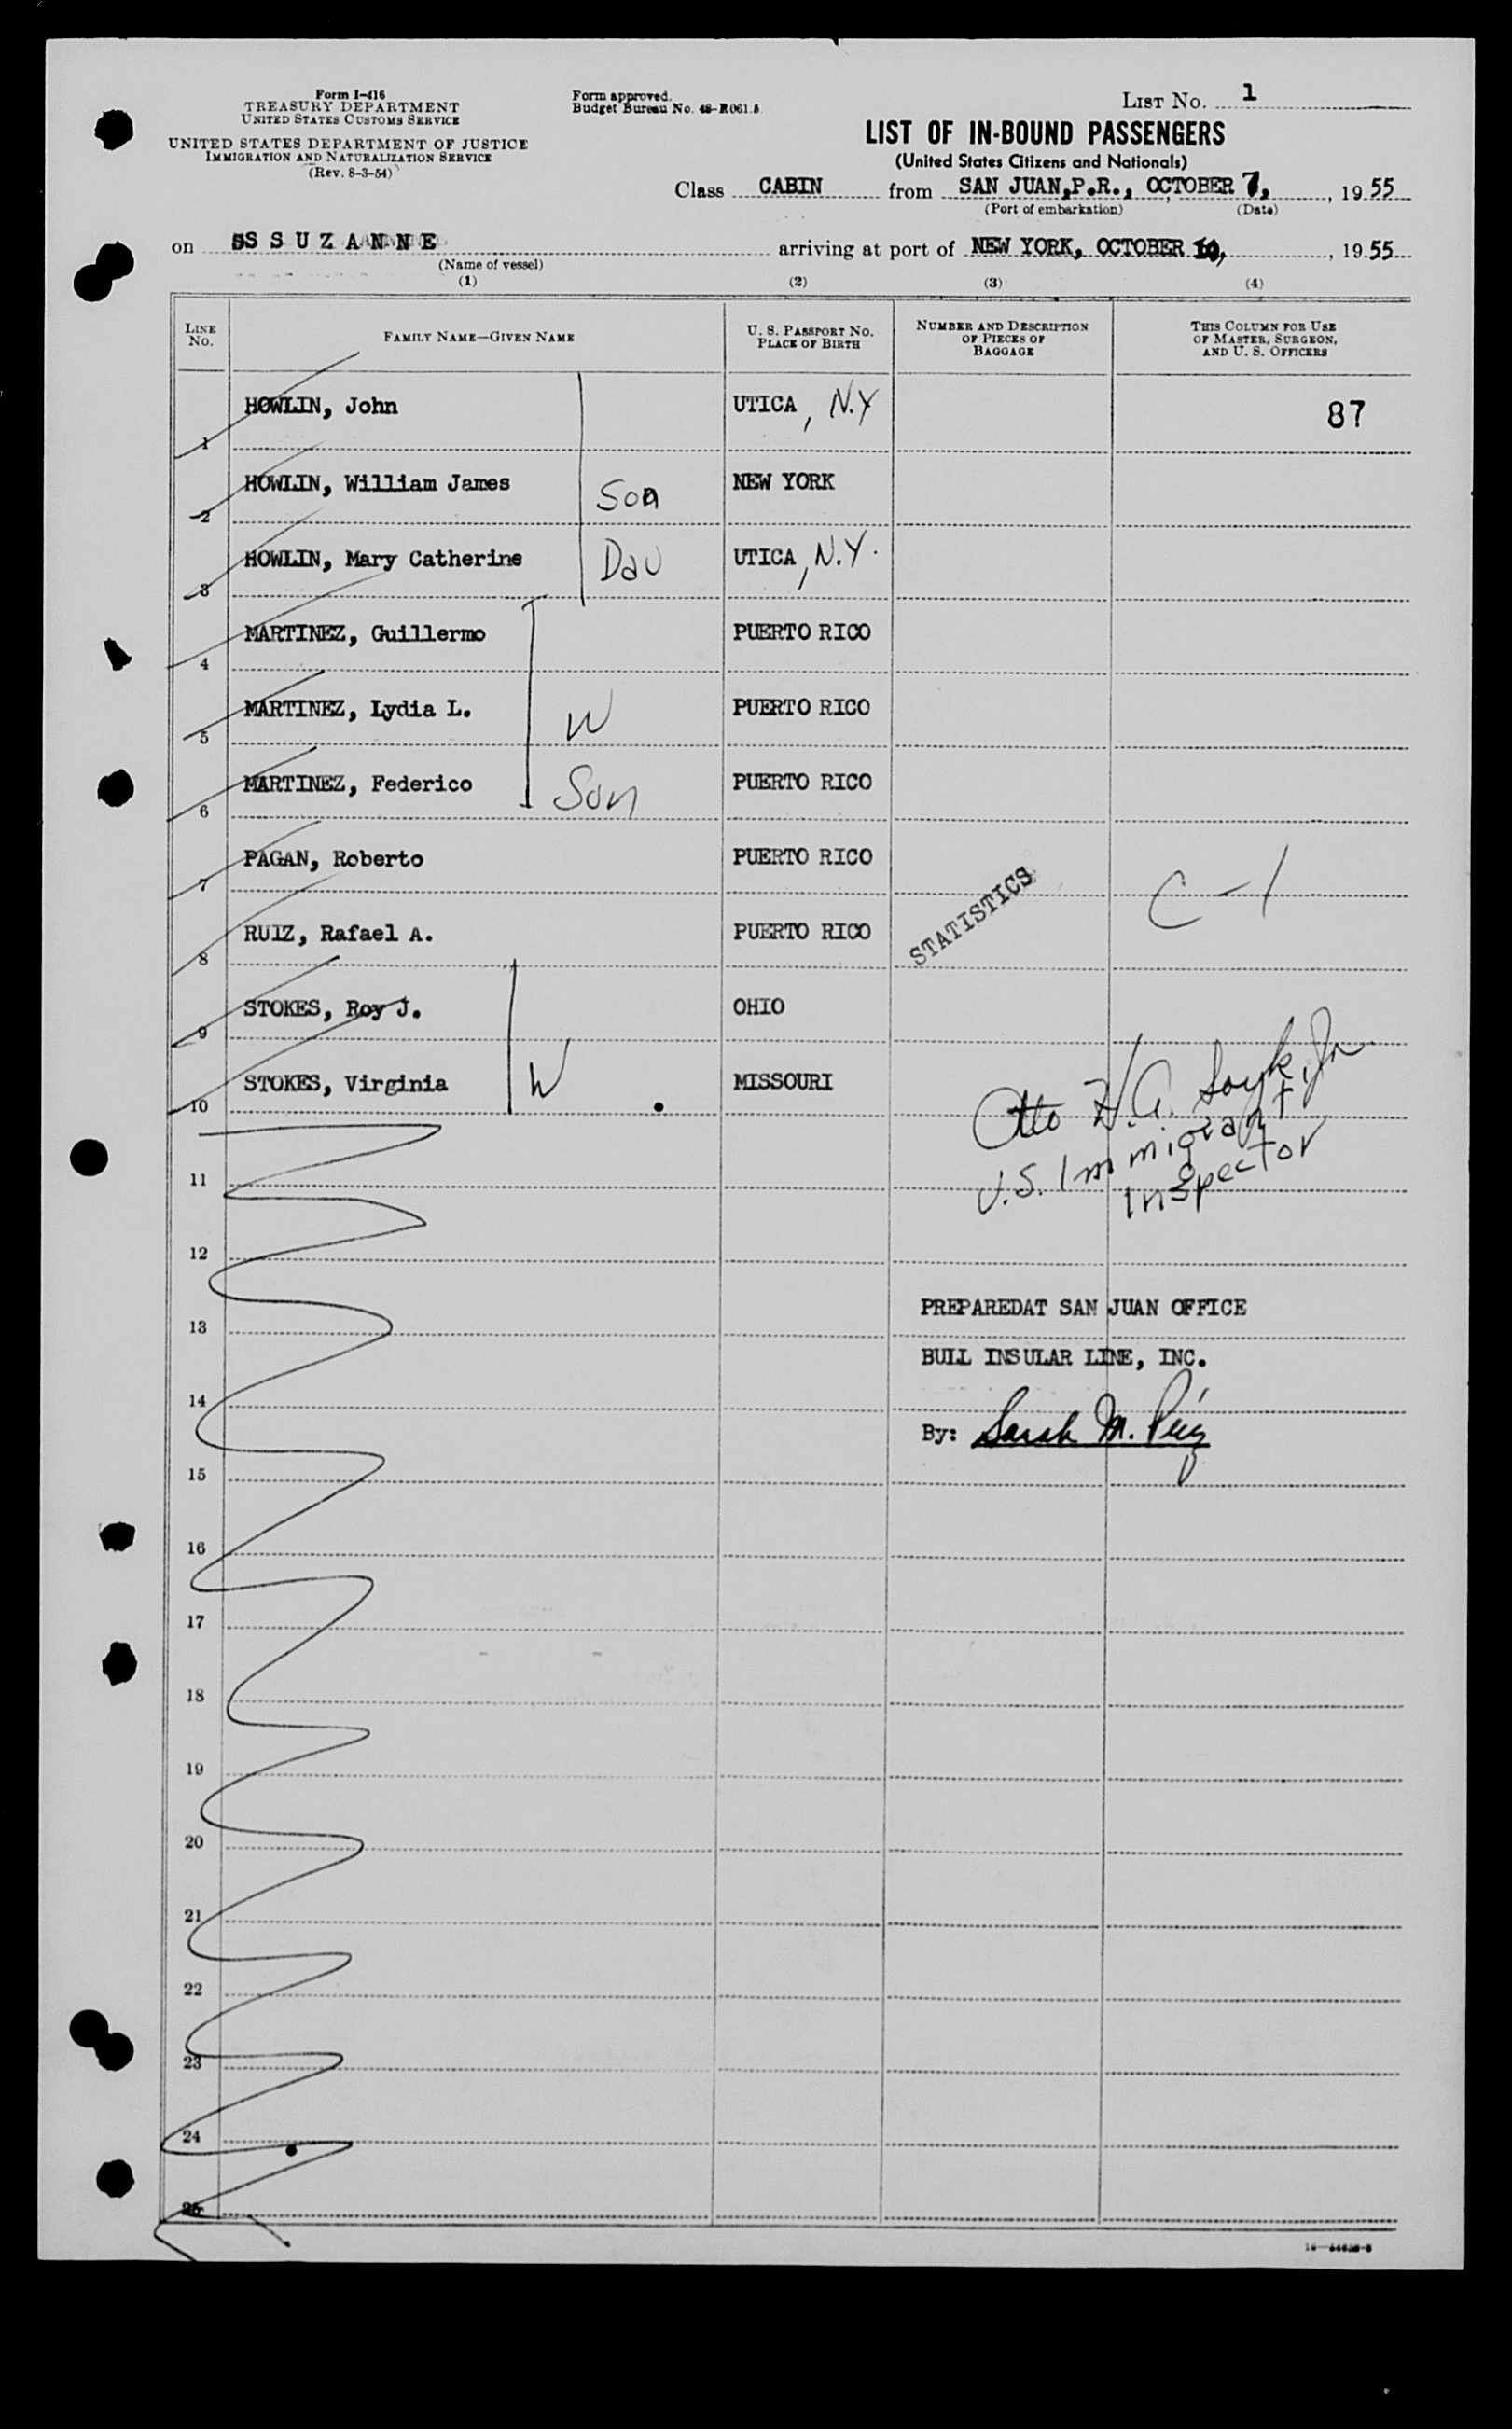 Form I-416
TREASURY DEPARTMENT
UNITED STATES CUSTOMS SERVICE
UNITED STATES DEPARTMENT OF JUSTICE
IMMIGRATION AND NATURALIZATION SERVICE
(Rev. 8-3-54)
Form approved.
Budget Bureau No. 43-R061.5
LIST NO. 1
LIST OF IN-BOUND PASSENGERS
(United States Citizens and Nationals)
Class CABIN from SAN JUAN,P.R., OCTOBER 7, , 19 55
(Port of embarkation) (Date)
on SS S U Z A N N E arriving at port of NEW YORK, OCTOBER 10, , 19 55
(Name of vessel)
(1) (2) (3) (4)
LINE NO. FAMILY NAME—GIVEN NAME U. S. PASSPORT NO. PLACE OF BIRTH NUMBER AND DESCRIPTION OF PIECES OF BAGGAGE THIS COLUMN FOR USE OF MASTER, SURGEON, AND U. S. OFFICERS
1 HOWLIN, John UTICA, N.Y 87
2 HOWLIN, William James Son NEW YORK
3 HOWLIN, Mary Catherine Dau UTICA, N.Y.
4 MARTINEZ, Guillermo PUERTO RICO
5 MARTINEZ, Lydia L. W PUERTO RICO
6 MARTINEZ, Federico Son PUERTO RICO
7 PAGAN, Roberto PUERTO RICO C-1
STATISTICS
8 RUIZ, Rafael A. PUERTO RICO
9 STOKES, Roy J. OHIO
10 STOKES, Virginia W MISSOURI
Otto H.A. Jr.
U.S. Immigrant
Inspector
11
12
PREPAREDAT SAN JUAN OFFICE
13
BULL INSULAR LINE, INC.
14
By: Sarah M.
15
16
17
18
19
20
21
22
23
24
25